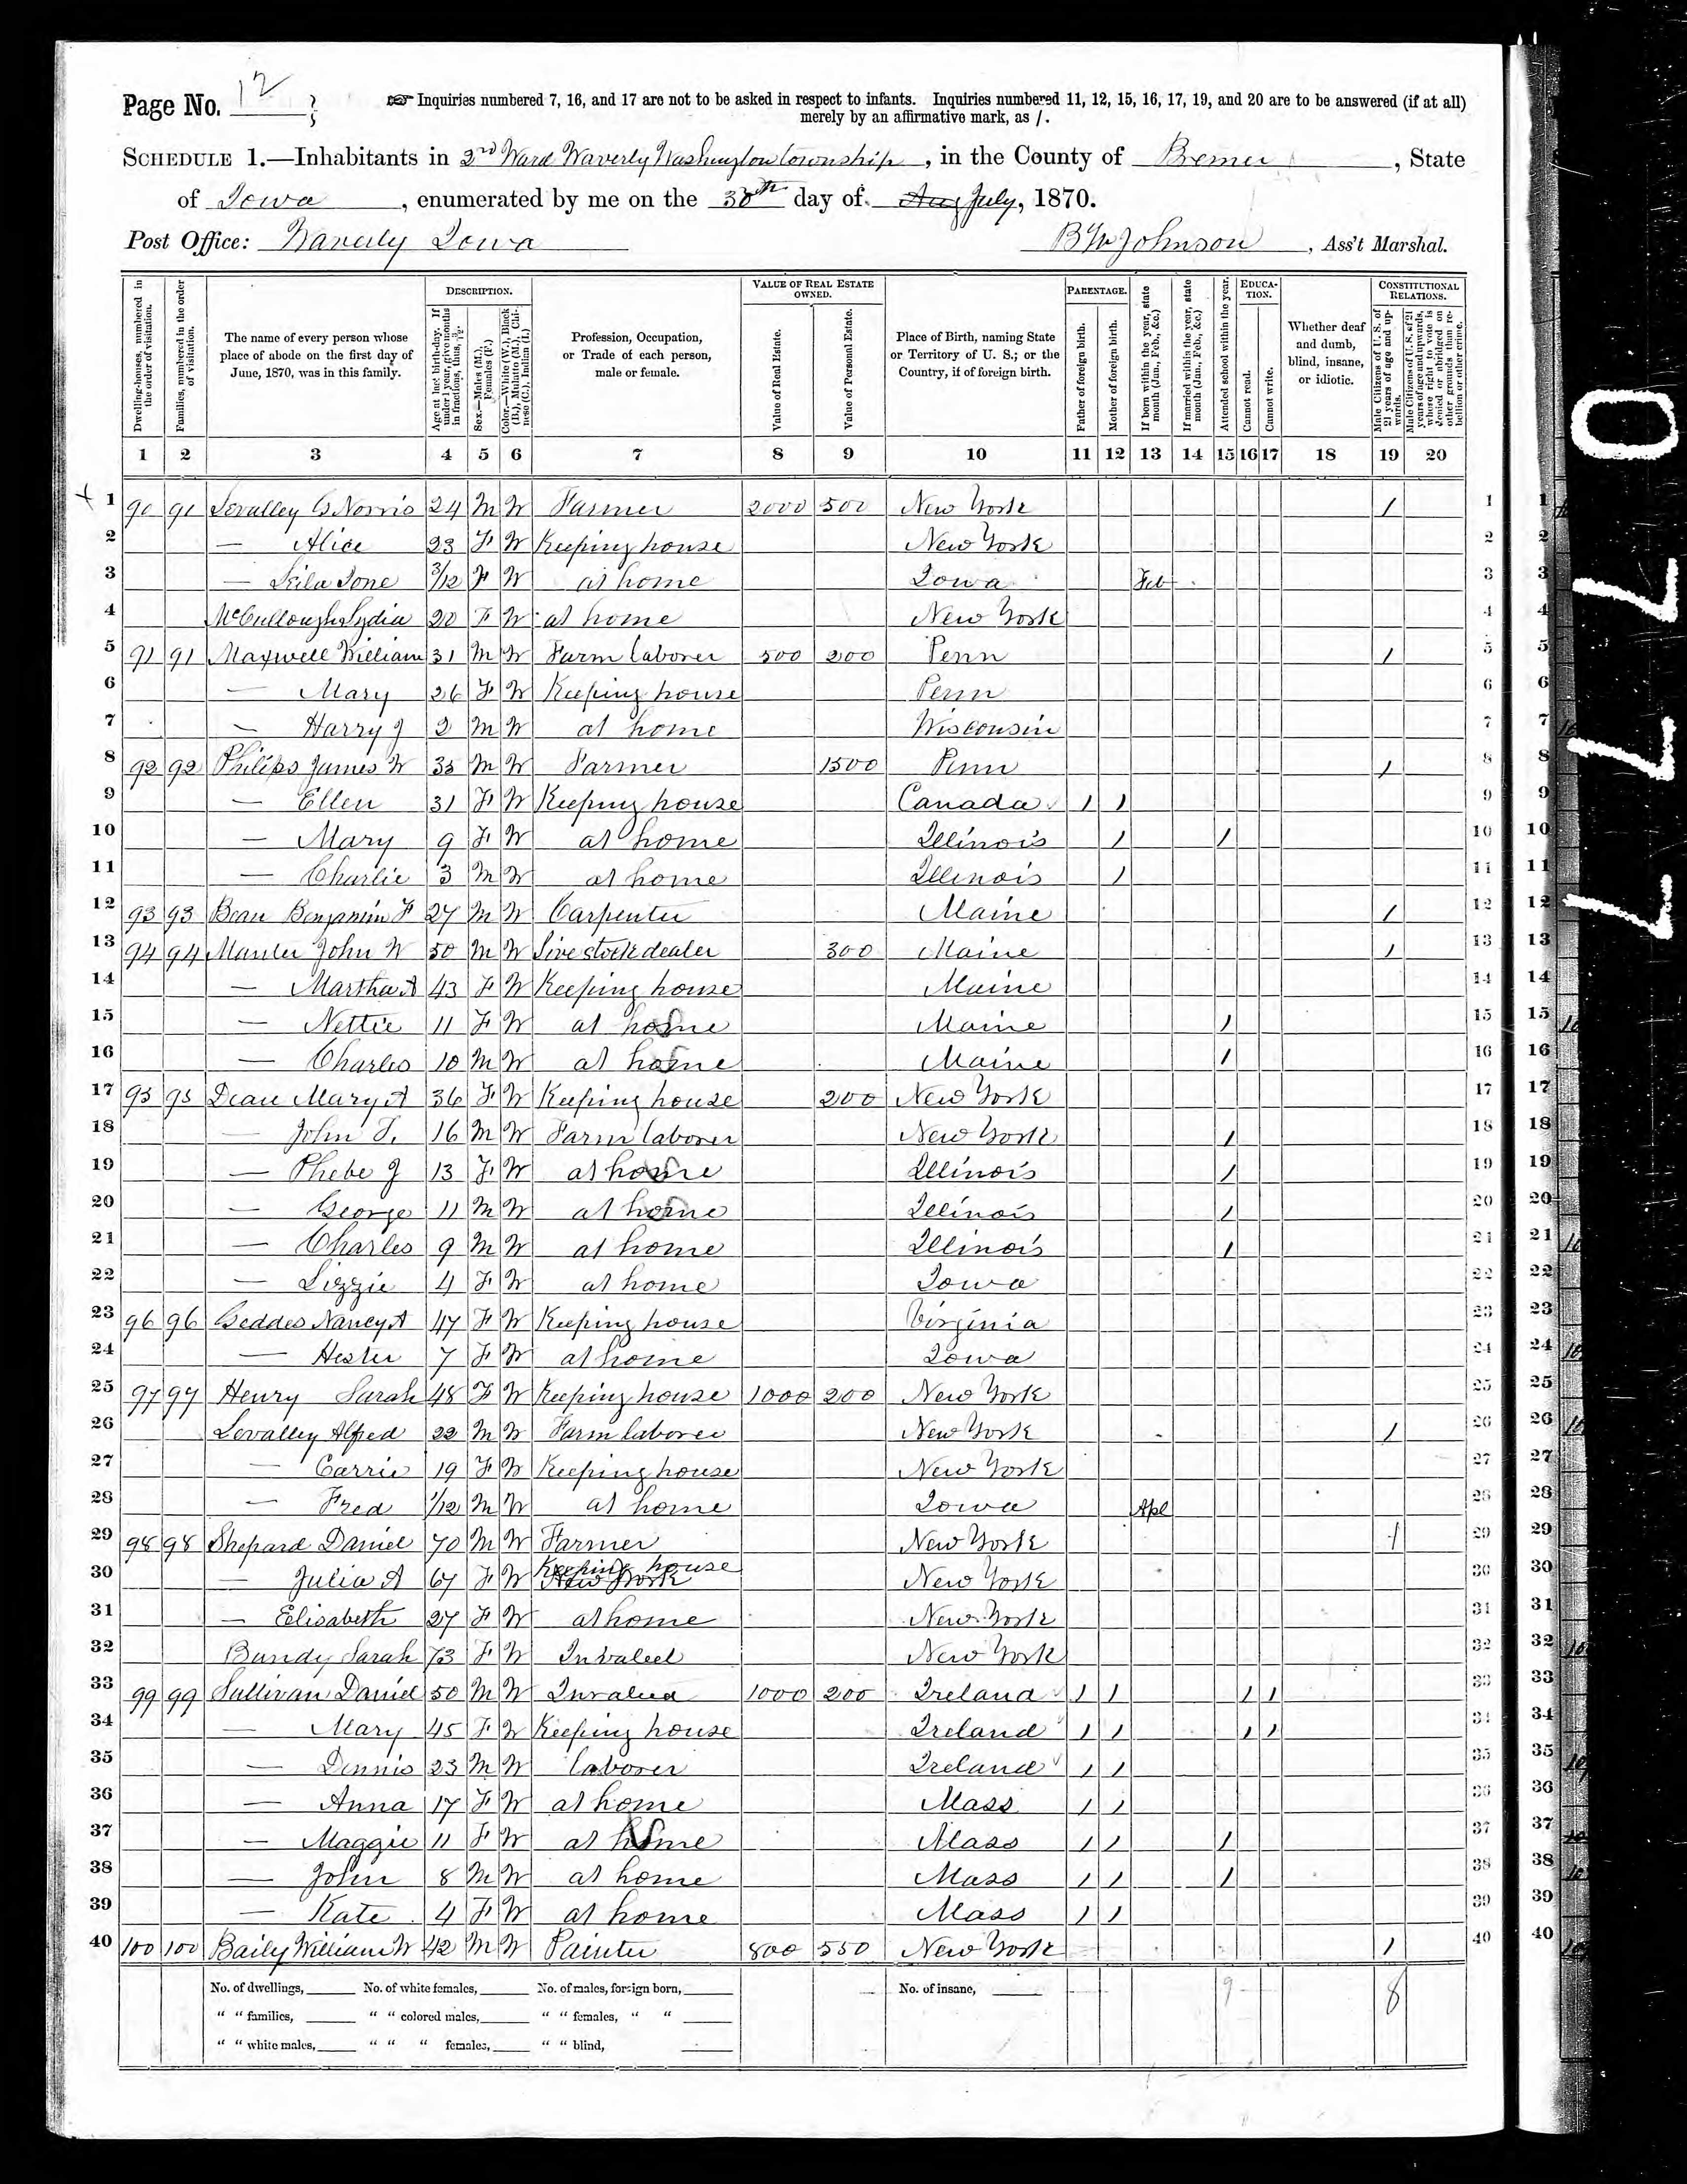 Page No. 12
☞ Inquiries numbered 7, 16, and 17 are not to be asked in respect to infants. Inquiries numbered 11, 12, 15, 16, 17, 19, and 20 are to be answered (if at all)
merely by an affirmative mark, as /.
SCHEDULE 1.—Inhabitants in 2nd Ward Waverly Washington township, in the County of Bremer, State
of Iowa, enumerated by me on the 30th day of Aug July, 1870.
Post Office: Waverly Iowa
B W Johnson, Ass't Marshal.
Dwelling-houses, numbered in the order of visitation.
Families, numbered in the order of visitation.
The name of every person whose place of abode on the first day of June, 1870, was in this family.
DESCRIPTION.
Age at last birth-day. If under 1 year, give months in fractions, thus, 3/12.
Sex.—Males (M.), Females (F.)
Color.—White (W.), Black (B.), Mulatto (M.), Chinese (C.), Indian (I.)
Profession, Occupation, or Trade of each person, male or female.
VALUE OF REAL ESTATE OWNED.
Value of Real Estate.
Value of Personal Estate.
Place of Birth, naming State or Territory of U. S.; or the Country, if of foreign birth.
PARENTAGE.
Father of foreign birth.
Mother of foreign birth.
If born within the year, state month (Jan., Feb., &c.)
If married within the year, state month (Jan., Feb., &c.)
Attended school within the year.
EDUCATION.
Cannot read.
Cannot write.
Whether deaf and dumb, blind, insane, or idiotic.
CONSTITUTIONAL RELATIONS.
Male Citizens of U. S. of 21 years of age and upwards.
Male Citizens of U. S. of 21 years of age and upwards, whose right to vote is denied or abridged on other grounds than rebellion or other crime.
1 2 3 4 5 6 7 8 9 10 11 12 13 14 15 16 17 18 19 20
1 90 91 Levalley G Norris 24 M W Farmer 2000 500 New York / 1
2 — Alice 23 F W Keeping house New York 2
3 — Leila Ione 3/12 F W at home Iowa Feb 3
4 McCullough Lydia 20 F W at home New York 4
5 91 91 Maxwell William 31 M W Farm laborer 500 200 Penn / 5
6 — Mary 26 F W Keeping house Penn 6
7 — Harry J 2 M W at home Wisconsin 7
8 92 92 Philips James W 35 M W Farmer 1500 Penn / 8
9 — Ellen 31 F W Keeping house Canada / / 9
10 — Mary 9 F W at home Illinois / / 10
11 — Charlie 3 M W at home Illinois / 11
12 93 93 Bean Benjamin F 27 M W Carpenter Maine / 12
13 94 94 John W 50 M W Live stock dealer 300 Maine / 13
14 — Martha A 43 F W Keeping house Maine 14
15 — Nettie 11 F W at home Maine / 15
16 — Charles 10 M W at home Maine / 16
17 95 95 Dean Mary A 36 F W Keeping house 200 New York 17
18 — John T. 16 M W Farm laborer New York / 18
19 — Phebe J 13 F W at home Illinois / 19
20 — George 11 M W at home Illinois / 20
21 — Charles 9 M W at home Illinois / 21
22 — Lizzie 4 F W at home Iowa 22
23 96 96 Geddes Nancy A 47 F W Keeping house Virginia 23
24 — Hester 7 F W at home Iowa 24
25 97 97 Henry Sarah 48 F W Keeping house 1000 200 New York 25
26 Levalley Alfred 22 M W Farm laborer New York / 26
27 — Carrie 19 F W Keeping house New York 27
28 — Fred 1/12 M W at home Iowa Apl 28
29 98 98 Shepard Daniel 70 M W Farmer New York / 29
30 — Julia A 67 F W Keeping house New York New York 30
31 — Elisabeth 27 F W at home New York 31
32 Bundy Sarah 73 F W Invalied New York 32
33 99 99 Sullivan Daniel 50 M W Invalied 1000 200 Ireland / / / / 33
34 — Mary 45 F W Keeping house Ireland / / / / 34
35 — Dennis 23 M W laborer Ireland / / 35
36 — Anna 17 F W at home Mass / / 36
37 — Maggie 11 F W at home Mass / / / 37
38 — John 8 M W at home Mass / / / 38
39 — Kate 4 F W at home Mass / / 39
40 100 100 Baily William W 42 M W Painter 800 550 New York / 40
No. of dwellings, No. of white females, No. of males, foreign born, No. of insane, 9 8
" " families, " " colored males, " " females, " "
" " white males, " " " females, " " blind,